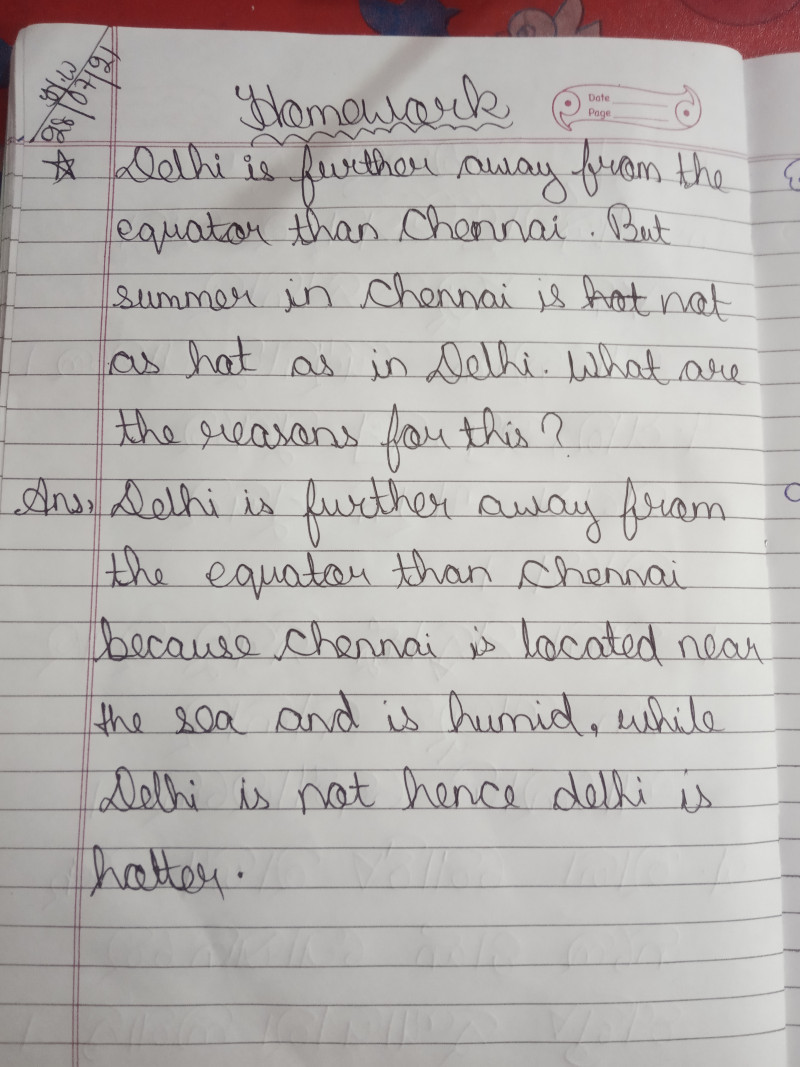 H.W
28/07/21
Homework
Date
Page
☆ Delhi is further away from the
equator than Chennai. But
summer in Chennai is hot not
as hot as in Delhi. What are
the reasons for this?
Ans, Delhi is further away from
the equator than Chennai
because Chennai is located near
the sea and is humid, while
Delhi is not hence delhi is
hotter.